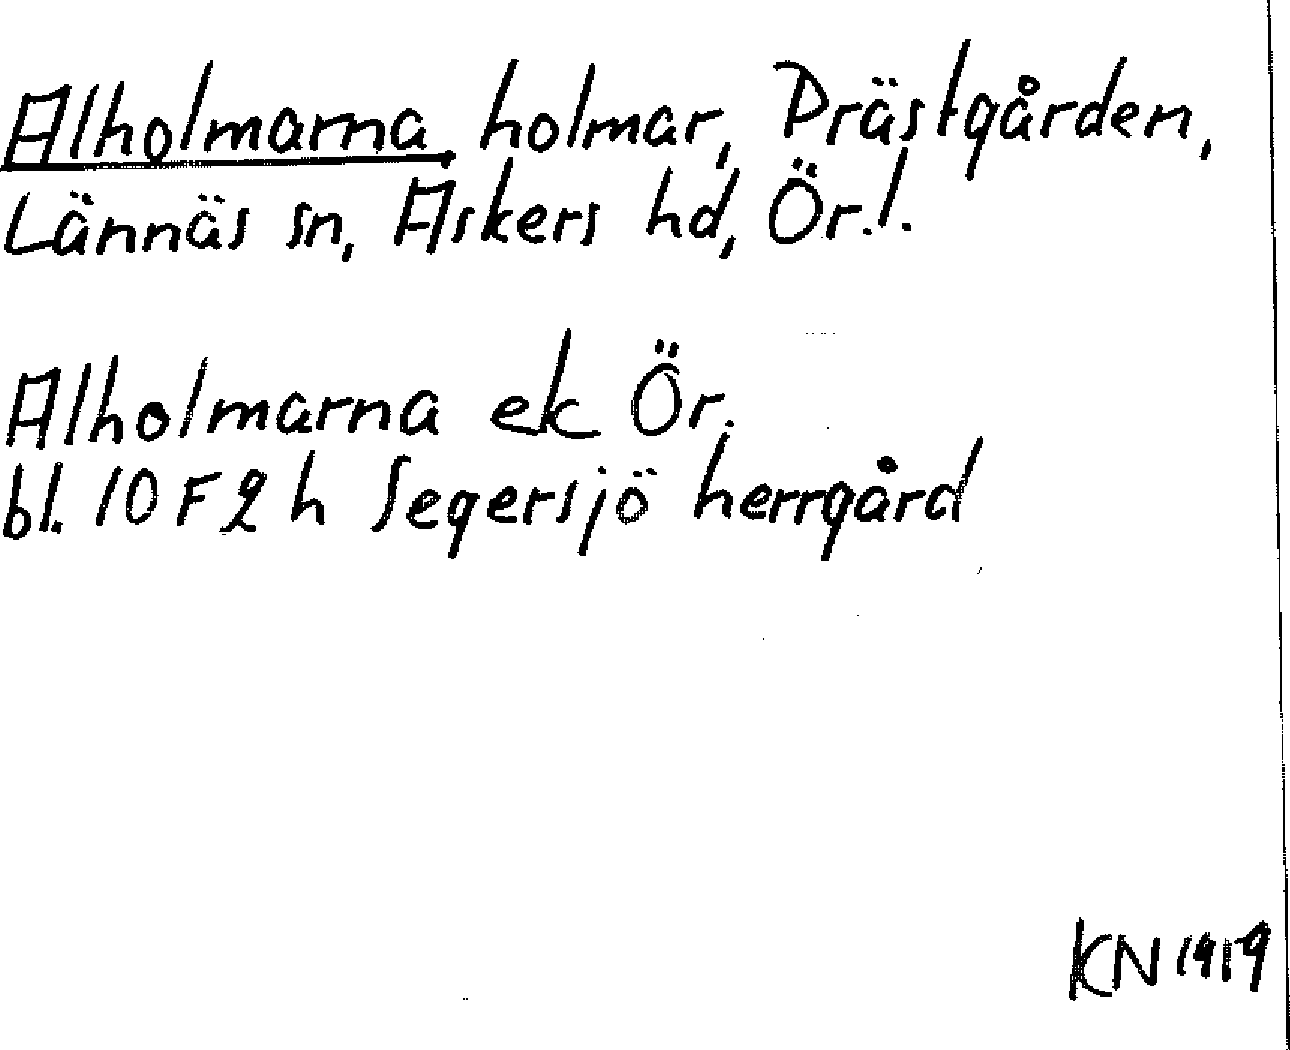 Alholmarna, holmar, Prästgården,
Lännäs sn, Askers hd, Ör.l.
Alholmarna ek Ör.
bl. 10F2h Segersjö herrgård
KN 1919